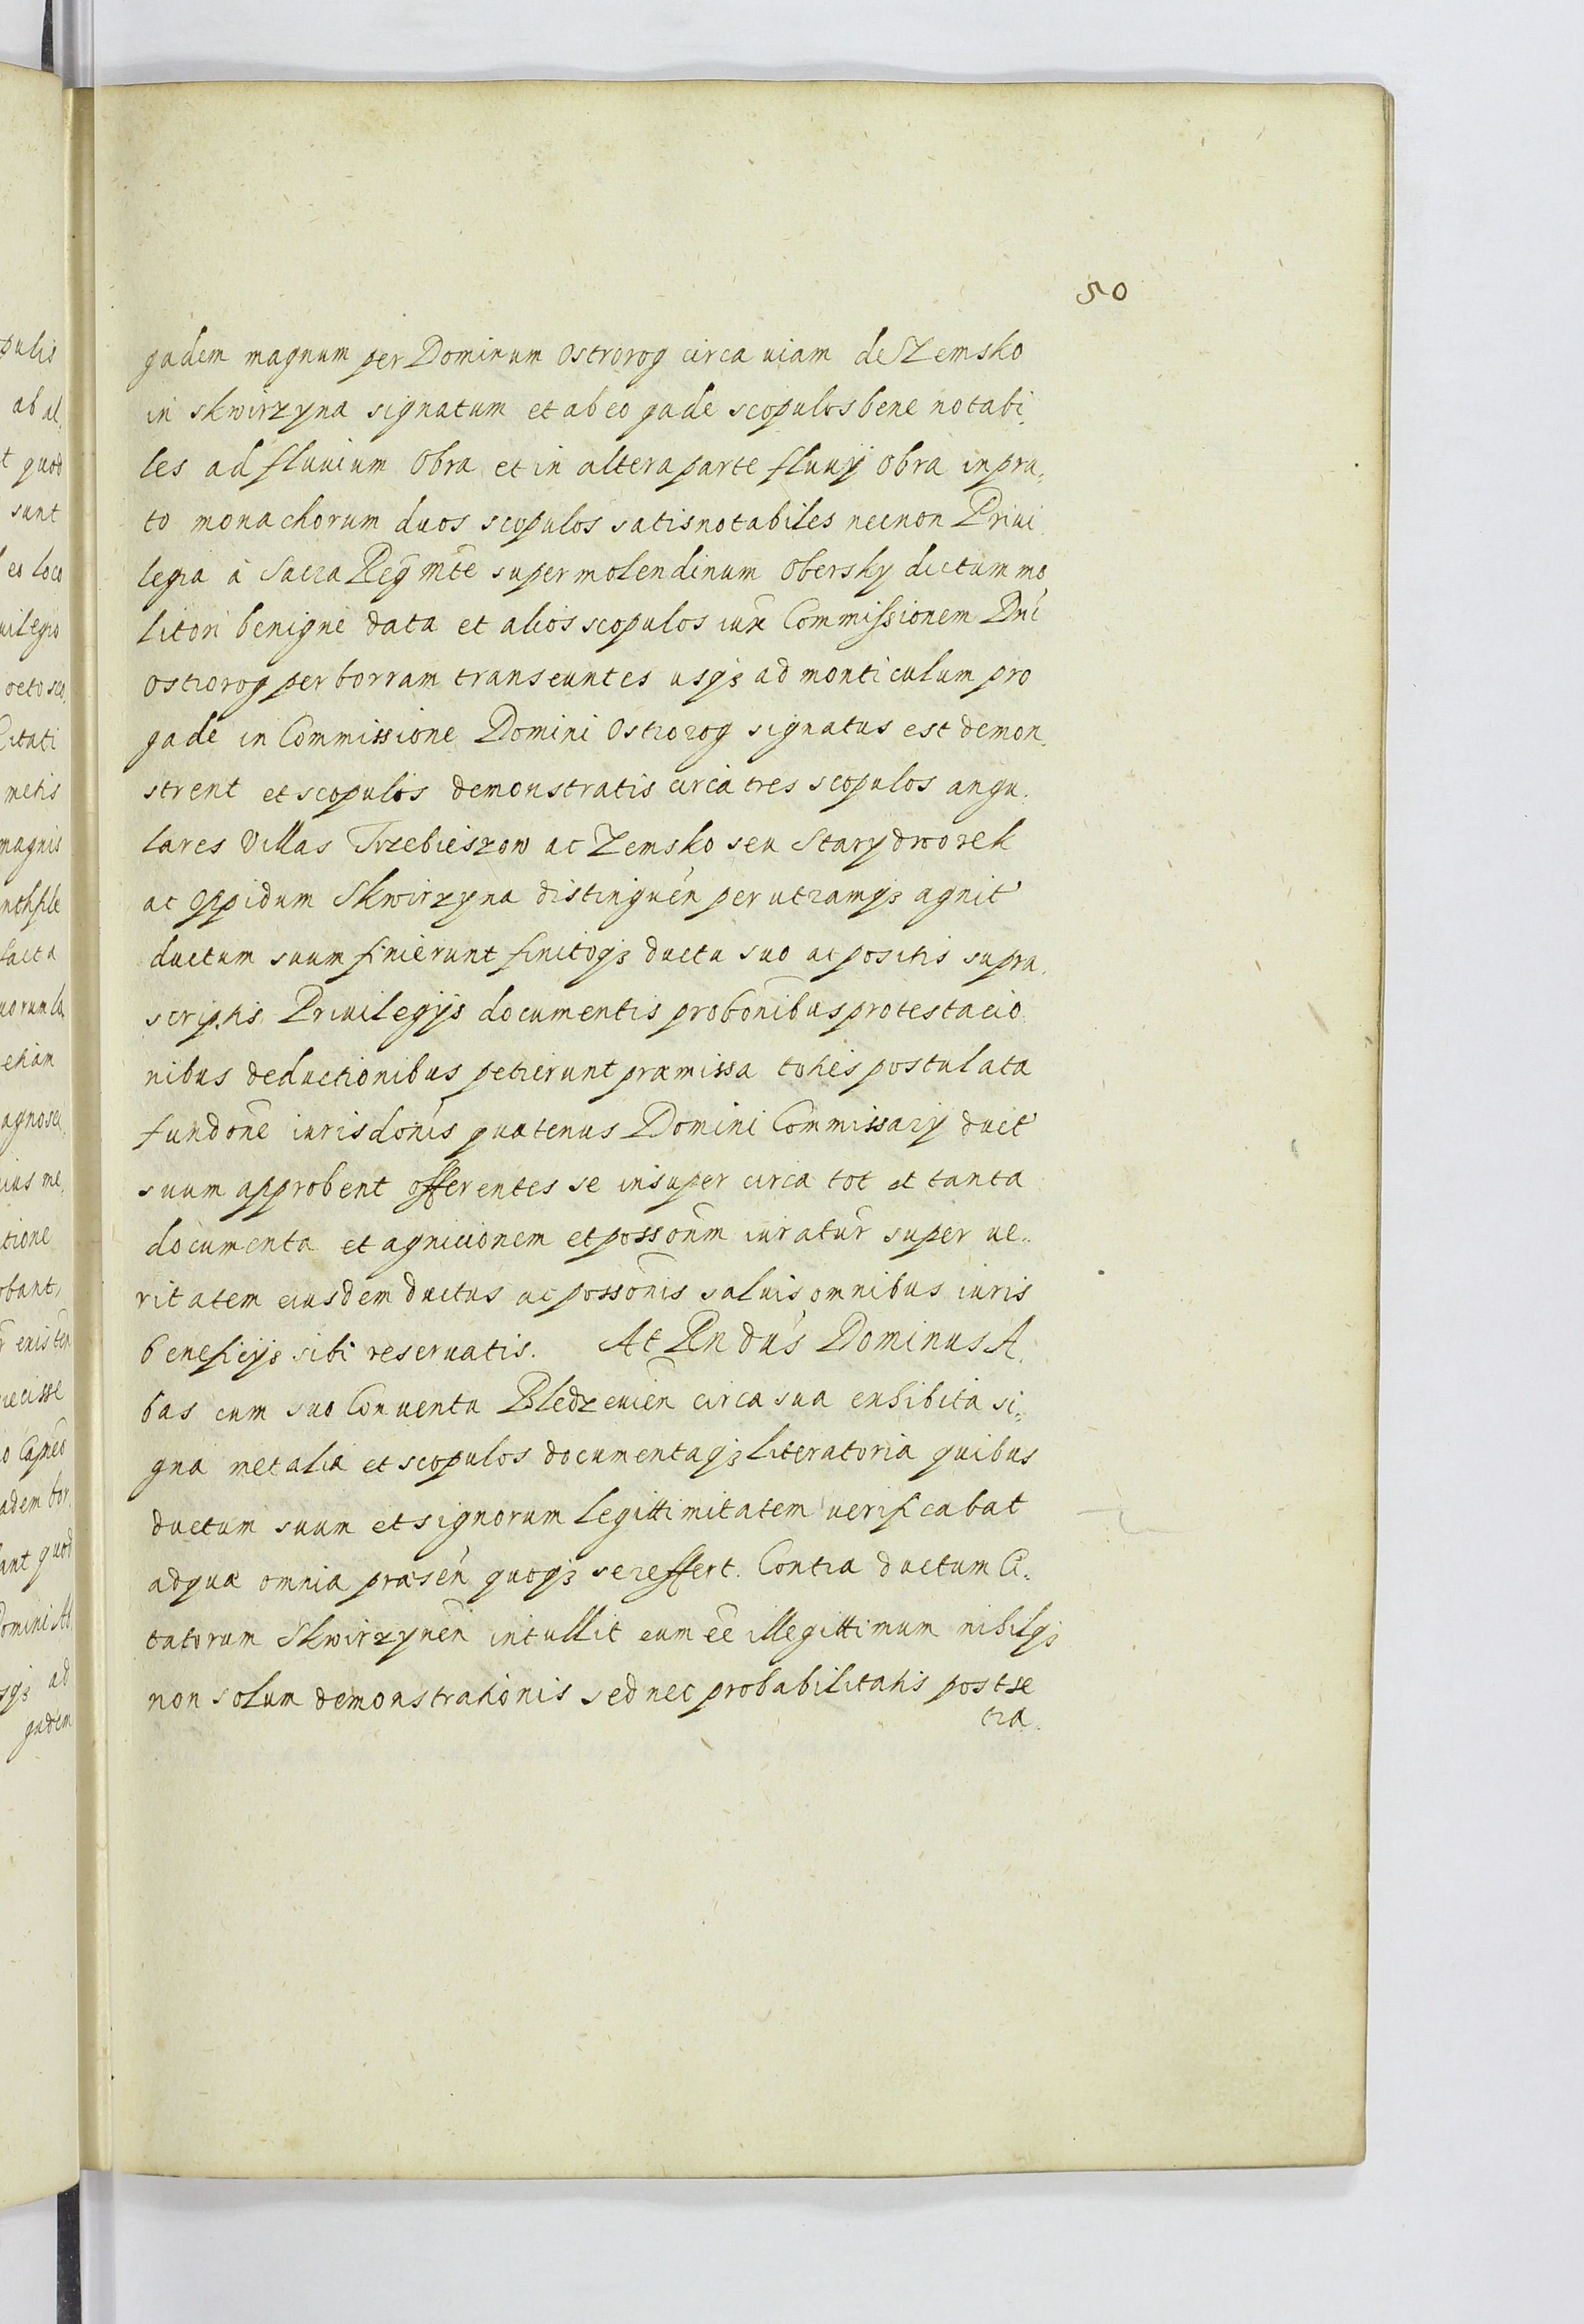 50
gadem magnum per Dominum Ostrorog circa uiam de Zemsko
in Skwirzyna signatum et ab eo gade scopulos bene notabi,
les ad fluuium Obra et in altera parte fluuij Obra in pra,
to monachorum duos scopulos satis notabiles necnon Priui
legia à Sacra Reg mte super molendinum Obersky dictum mo
litori benigne data et alios scopulos iux Commissionem Dni
Ostrorog per borram transeuntes usq3 ad monticulum pro
gade in Commissione Domini Ostrorog signatus est demon,
strent et scopulis demonstratis circa tres scopulos angu,
lares Villas Trzebieszow ac Zemsko seu Stary dworek
ac oppidum Skwirzyna distinguen per utramq3 agnit
ductum suum finierunt finitoq3 ductu suo ac positis supra,
scriptis Priuilegijs documentis probonibus protestacio
nibus deductionibus petierunt præmissa toties postulata
fundone iurisdonis quatenus Domini Commissarij duct
suum approbent offerentes se insuper circa tot et tanta
documenta et agnicionem et possonem iuratur super ue,
ritatem eiusdem ductus ac possonis saluis omnibus iuris
beneficijs sibi reseruatis. At Rndus Dominus A,
bas cum suo Conuentu Bledzeuien circa sua exhibita si,
gna metalia et scopulos documentaq3 literatoria quibus
ductum suum et signorum legittimitatem uerificabat
ad quæ omnia præsen quoq3 se reffert. Contra ductum Ci,
tatorum Skwirzynen intullit eum ee illegittimum nihilq3
non solum demonstrationis sed nec probabilitatis post se
tra,
pulis
ab al,
t quod
sunt
eo loco
uilegio
octo sco,
Citati
metis
magnis
facta
etiam
agnosci,
tione
ecisse
ant quod
Domini Ab
sq3 ad
gadem